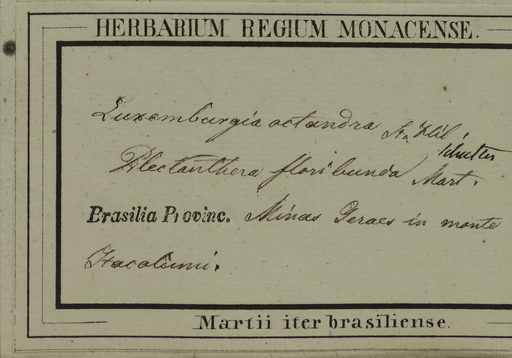 HERBARIUM REGIUM MONACENSE.
Luxemburgia octandra St. Hil.
Plectanthera floribunda Mart.
Brasilia Provinc. Minas Geraes in monte
Itacolumi.
Martii iter brasiliense.